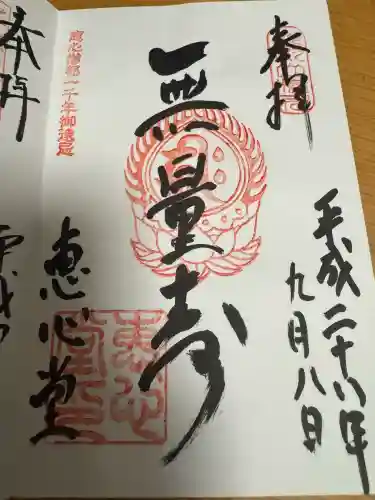 奉拝
平成二十八年
九月八日
無量寿
恵心僧都一千年御遠忌
恵心堂
恵心
堂印
奉拝